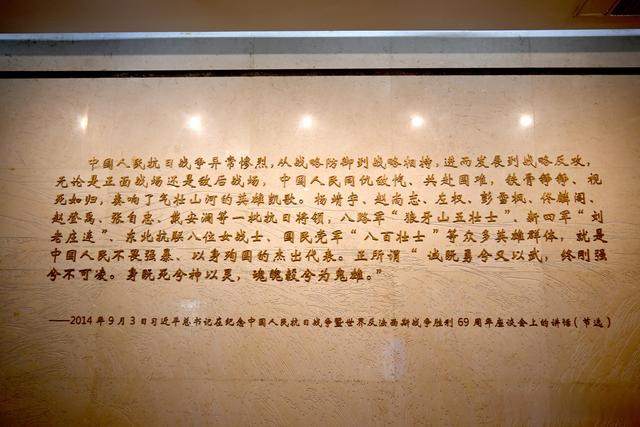 中国人民抗日战争异常惨烈,从战略防御到战略相持,进而发展到战略反攻,
无论是正面战场还是敌后战场,中国人民同仇敌忾、共赴国难,铁骨铮铮、视
死如归,奏响了气壮山河的英雄凯歌。杨靖宇、赵尚志、左权、彭雪枫、佟麟阁、
赵登禹、张自忠、戴安澜等一批抗日将领,八路军“狼牙山五壮士”、新四军“刘
老庄连”、东北抗联八位女战士、国民党军“八百壮士”等众多英雄群体,就是
中国人民不畏强暴、以身殉国的杰出代表。正所谓“诚既勇兮又以武,终刚强
兮不可凌。身既死兮神以灵,魂魄毅兮为鬼雄。”
——2014年9月3日习近平总书记在纪念中国人民抗日战争暨世界反法西斯战争胜利69周年座谈会上的讲话(节选)